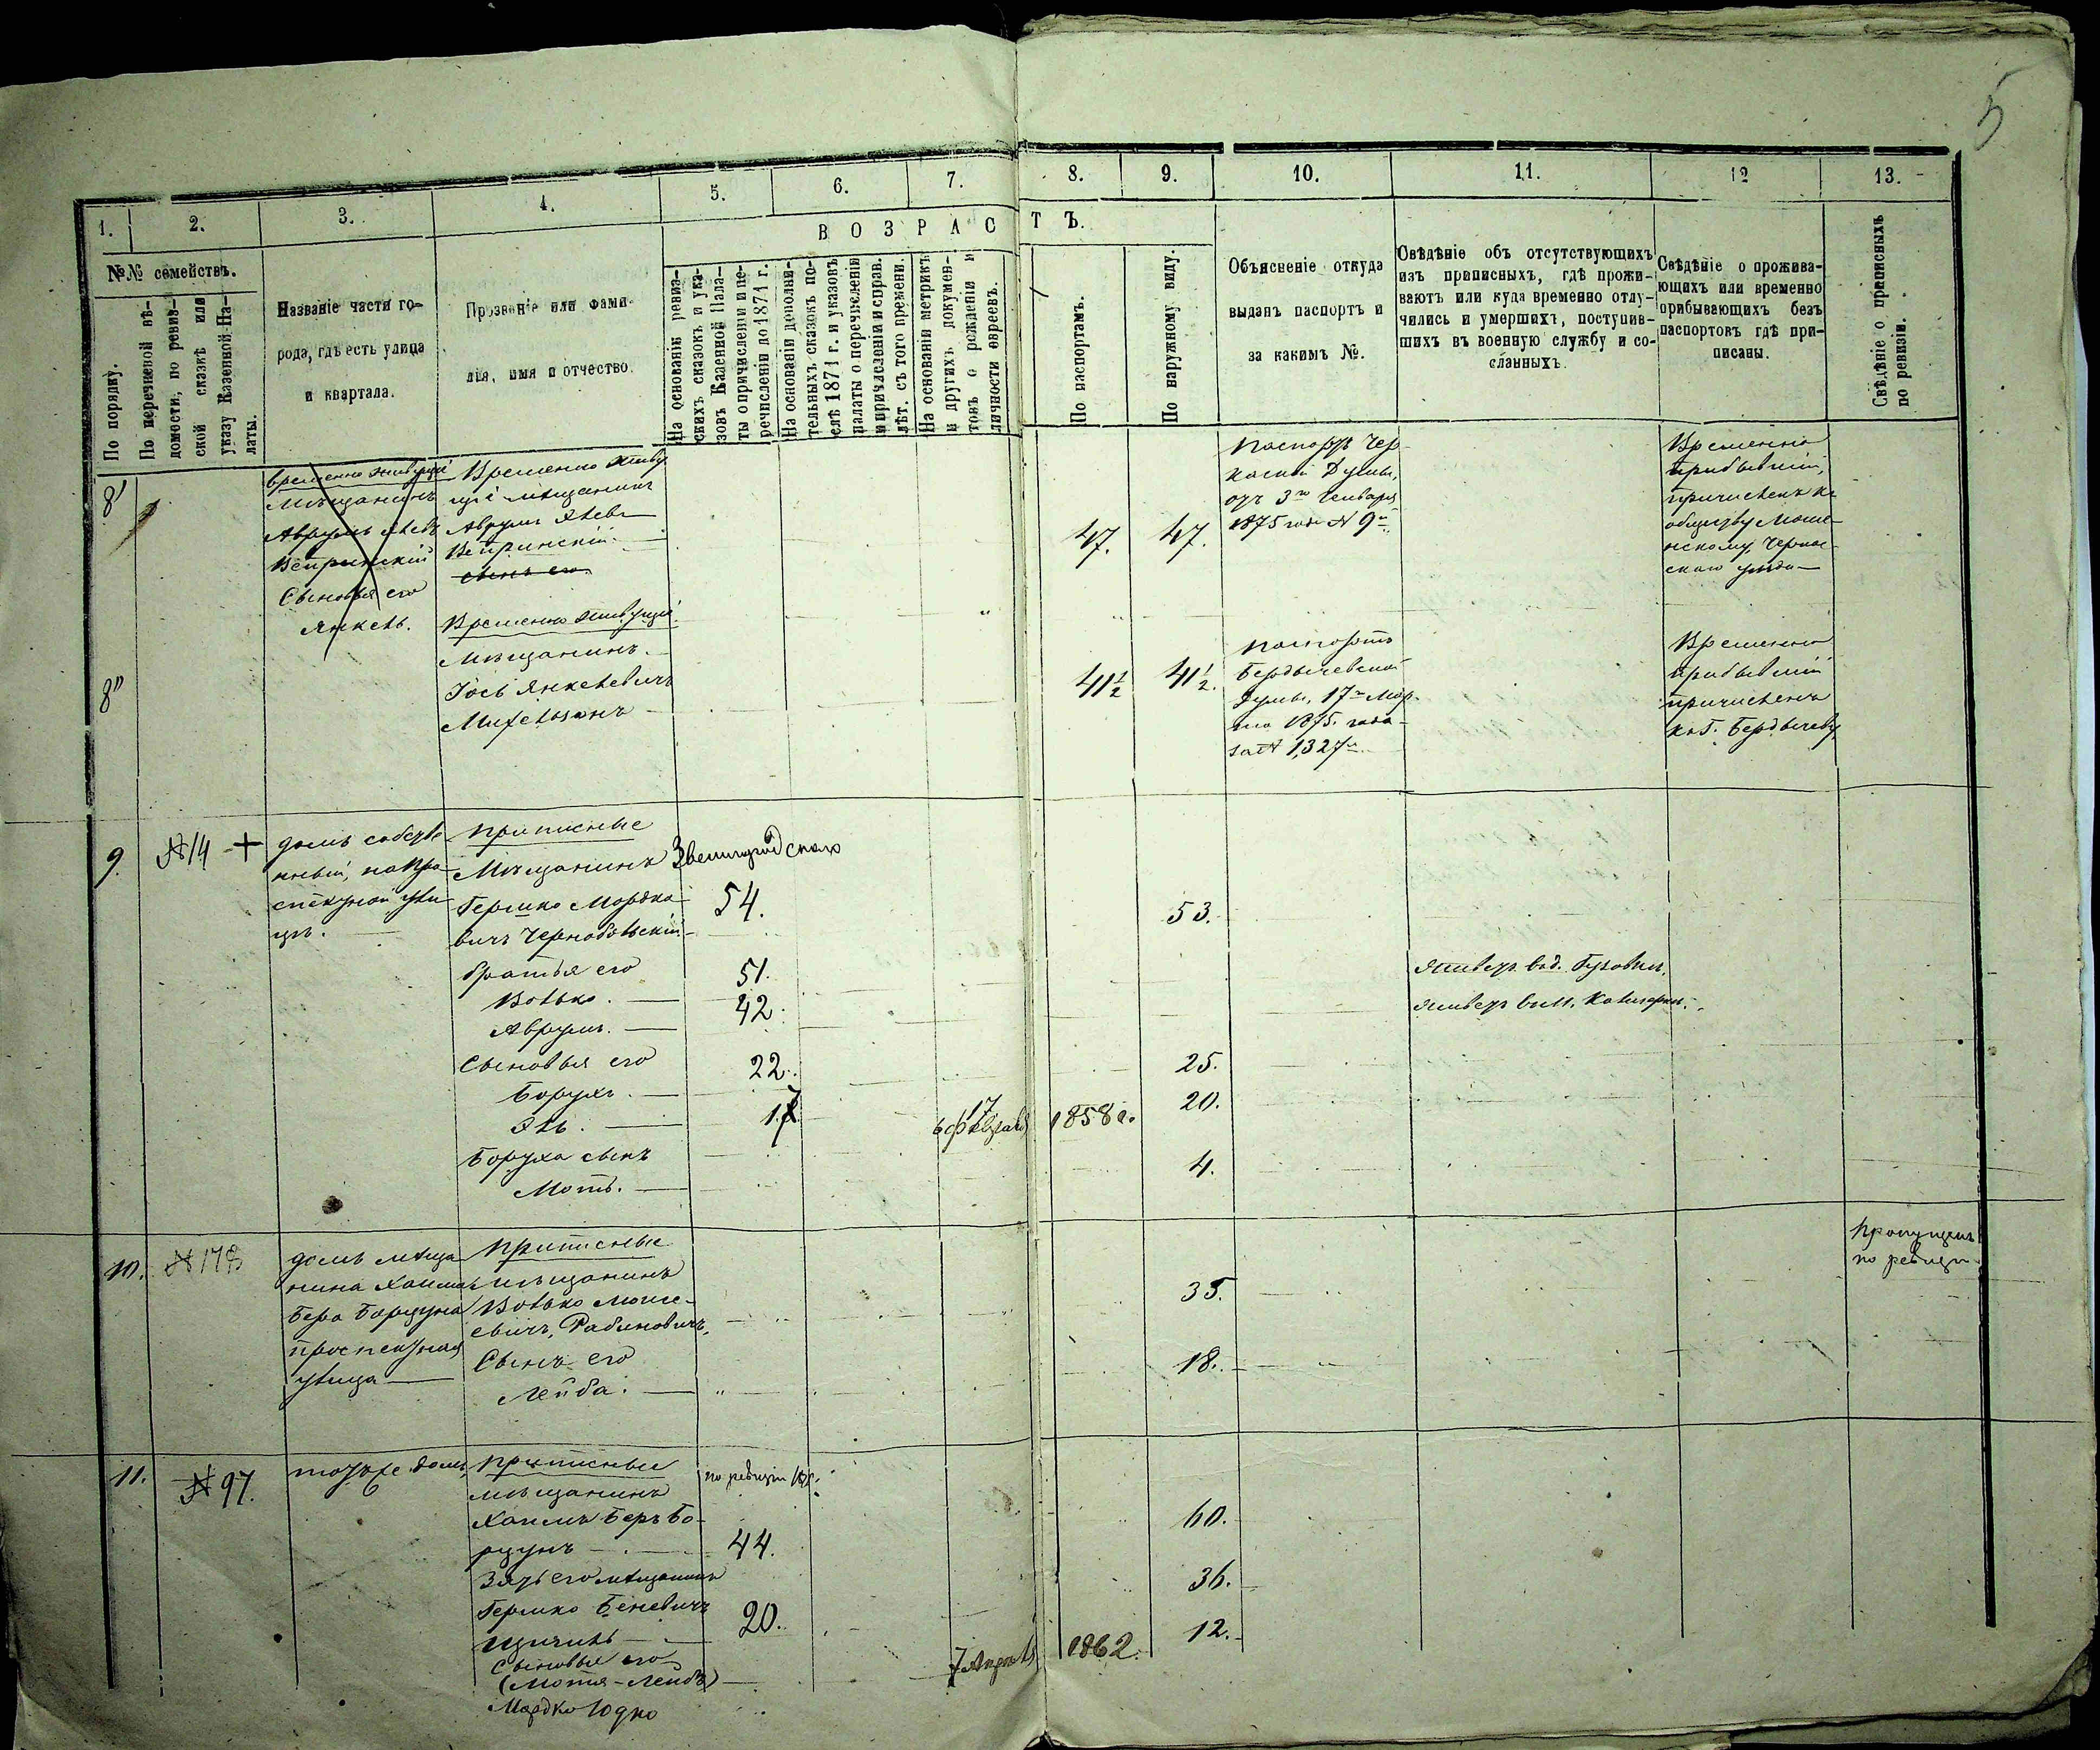 5
1. 2. 3. 4. 5. 6. 7. 8. 9. 10. 11. 12 13.
В О З Р А С Т Ъ.
№№ семействъ.
По порядку.
По перечневой вѣ-
домости, по ревиз-
ской сказкѣ или
указу Казенной Па-
латы.
Названіе части го-
рода, гдѣ есть улица
и квартала.
Прозваніе или фами-
лія, имя и отчество.
На основаніи ревиз-
скихъ сказокъ и ука-
зовъ Казенной Пала-
ты о причисленіи и пе-
речисленіи до 1871 г.
На основаніи дополни-
тельныхъ сказокъ по-
слѣ 1871 г. и указовъ
палаты о перечисленіи
и причисленіи и справ.
лѣт. съ того времени.
На основаніи метрикъ
и другихъ докумен-
товъ о рожденіи и
личности евреевъ.
По паспортамъ.
По наружному виду.
Объясненіе откуда
выданъ паспортъ и
за какимъ №.
Свѣдѣніе объ отсутствующихъ
изъ приписныхъ, гдѣ прожи-
ваютъ или куда временно отлу-
чились и умершихъ, поступив-
шихъ въ военную службу и со-
сланныхъ.
Свѣдѣніе о прожива-
ющихъ или временно
прибывающихъ безъ
паспортовъ гдѣ при-
писаны.
Свѣдѣніе о приписныхъ
по ревизіи.
8'
временно живущій
Мѣщанинъ
Аврумъ
Сыновья его
Янкель.
Временно живу
щій мѣщанинъ
Аврумъ
сынъ его
47. 47.
Паспортъ Чер-
каской Думы,
отъ 3го Января
1875 года N 9й
Временно
прибывшій,
причисленъ къ
обществу Моше-
нскому, Черкас-
скаго уѣзда
8"
Временно живущій
Мѣщанинъ
Іось Янкелевичъ
Михельзонъ
41½ 41½.
Паспортъ
Бердычевской
Думы, 17го Мар-
та 1875. года
за N 1,327м
Временно
прибывшій
причисленъ
къ г. Бердычеву
9. N 14 +
домъ собстве
нный, на Про-
спектной ули
цѣ.
Приписные
Мѣщанинъ Звенигородскаго
Гершко Мордко-
вичъ Чернобольскій 54. 53.
братья его
Волько. 51. Живетъ въ д.
Аврумъ. 42. Живетъ въ м.
Сыновья его
Борухъ. 22. 25.
Эль. 17. 17 6 Февраля 1858 г. 20.
Боруха сынъ
Мотъ. 4.
10. N 178
домъ мѣща
нина Хаима
Бера
проспектная
улица
Приписные
мѣщанинъ
Волько Моше-
евичъ, Рабиновичъ, 35.
Сынъ его
Лейба. 18.
Пропущенъ
по ревизіи
11. N 97.
тотъже домъ
Приписные
мѣщанинъ
Хаимъ Беръ Бо-
44. 60.
по ревизіи
Зять его мѣщанинъ
Гершко Беневичъ
20. 36.
Сыновья его
(Мотя-Лейбъ) 7 Апрѣля 1862. 12.
Мордко Юдко